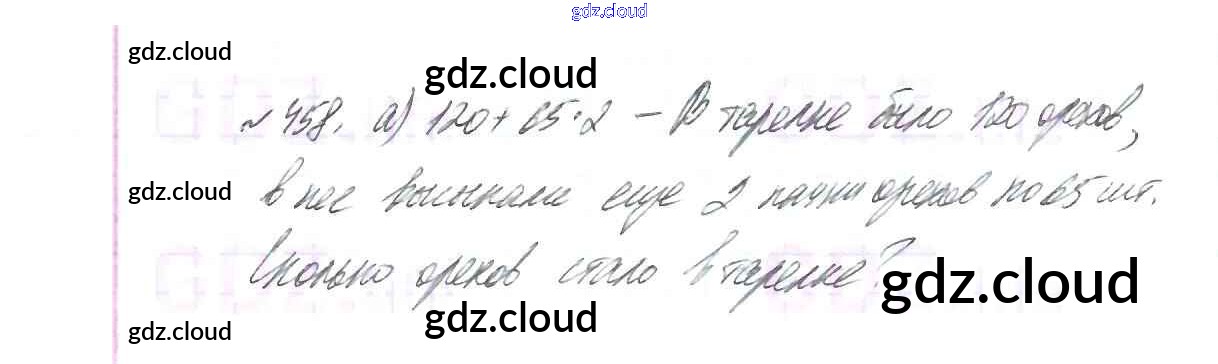 gdz.cloud
gdz.cloud
gdz.cloud
№ 458. а) 120 + 65 · 2 — В тарелке было 120 орехов,
gdz.cloud
в нее высыпали еще 2 пачки орехов по 65 шт.
Сколько орехов стало в тарелке?
gdz.cloud
gdz.cloud
gdz.cloud